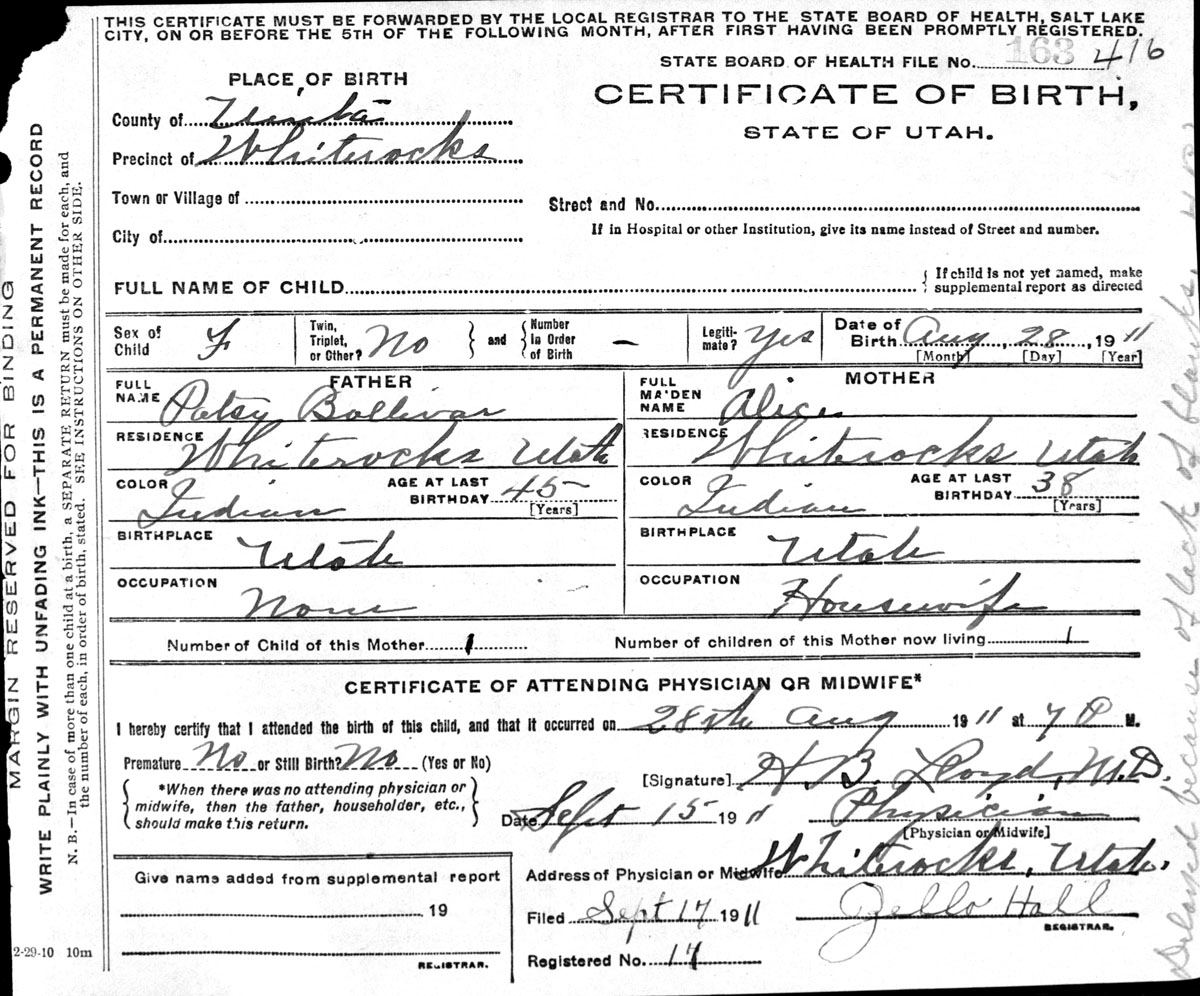 THIS CERTIFICATE MUST BE FORWARDED BY THE LOCAL REGISTRAR TO THE STATE BOARD OF HEALTH, SALT LAKE
CITY, ON OR BEFORE THE 5TH OF THE FOLLOWING MONTH, AFTER FIRST HAVING BEEN PROMPTLY REGISTERED.
STATE BOARD OF HEALTH FILE No. 163 416
PLACE OF BIRTH
CERTIFICATE OF BIRTH,
STATE OF UTAH.
County of Uinta
Precinct of Whiterocks
Town or Village of
Street and No.
City of
If in Hospital or other Institution, give its name instead of Street and number.
FULL NAME OF CHILD
{ If child is not yet named, make
supplemental report as directed
Sex of Child F
Twin, Triplet, or Other? No } and { Number In Order of Birth –
Legiti-mate? Yes
Date of Birth Aug, 28, 1911
[Month] [Day] [Year]
FATHER
FULL NAME Patsy Bollivar
RESIDENCE Whiterocks Utah
COLOR Indian
AGE AT LAST BIRTHDAY 45
[Years]
BIRTHPLACE Utah
OCCUPATION None
MOTHER
FULL MAIDEN NAME Alice
RESIDENCE Whiterocks Utah
COLOR Indian
AGE AT LAST BIRTHDAY 38
[Years]
BIRTHPLACE Utah
OCCUPATION Housewife
Number of Child of this Mother 1
Number of children of this Mother now living 1
CERTIFICATE OF ATTENDING PHYSICIAN OR MIDWIFE*
I hereby certify that I attended the birth of this child, and that it occurred on 28th Aug 1911 at 7 P M.
Premature No or Still Birth? No (Yes or No)
{ *When there was no attending physician or
midwife, then the father, householder, etc.,
should make this return. }
[Signature] H. B. Lloyd, M.D.
Date Sept 15 1911 Physician
[Physician or Midwife]
Address of Physician or Midwife Whiterocks, Utah.
Filed Sept 17 1911 Zello Hall
REGISTRAR.
Registered No. 17
Give name added from supplemental report
19
REGISTRAR.
MARGIN RESERVED FOR BINDING
WRITE PLAINLY WITH UNFADING INK—THIS IS A PERMANENT RECORD
N. B.—In case of more than one child at a birth, a SEPARATE RETURN must be made for each, and
the number of each, in order of birth, stated. SEE INSTRUCTIONS ON OTHER SIDE.
2-29-10 10m
Delayed because of lack of blanks